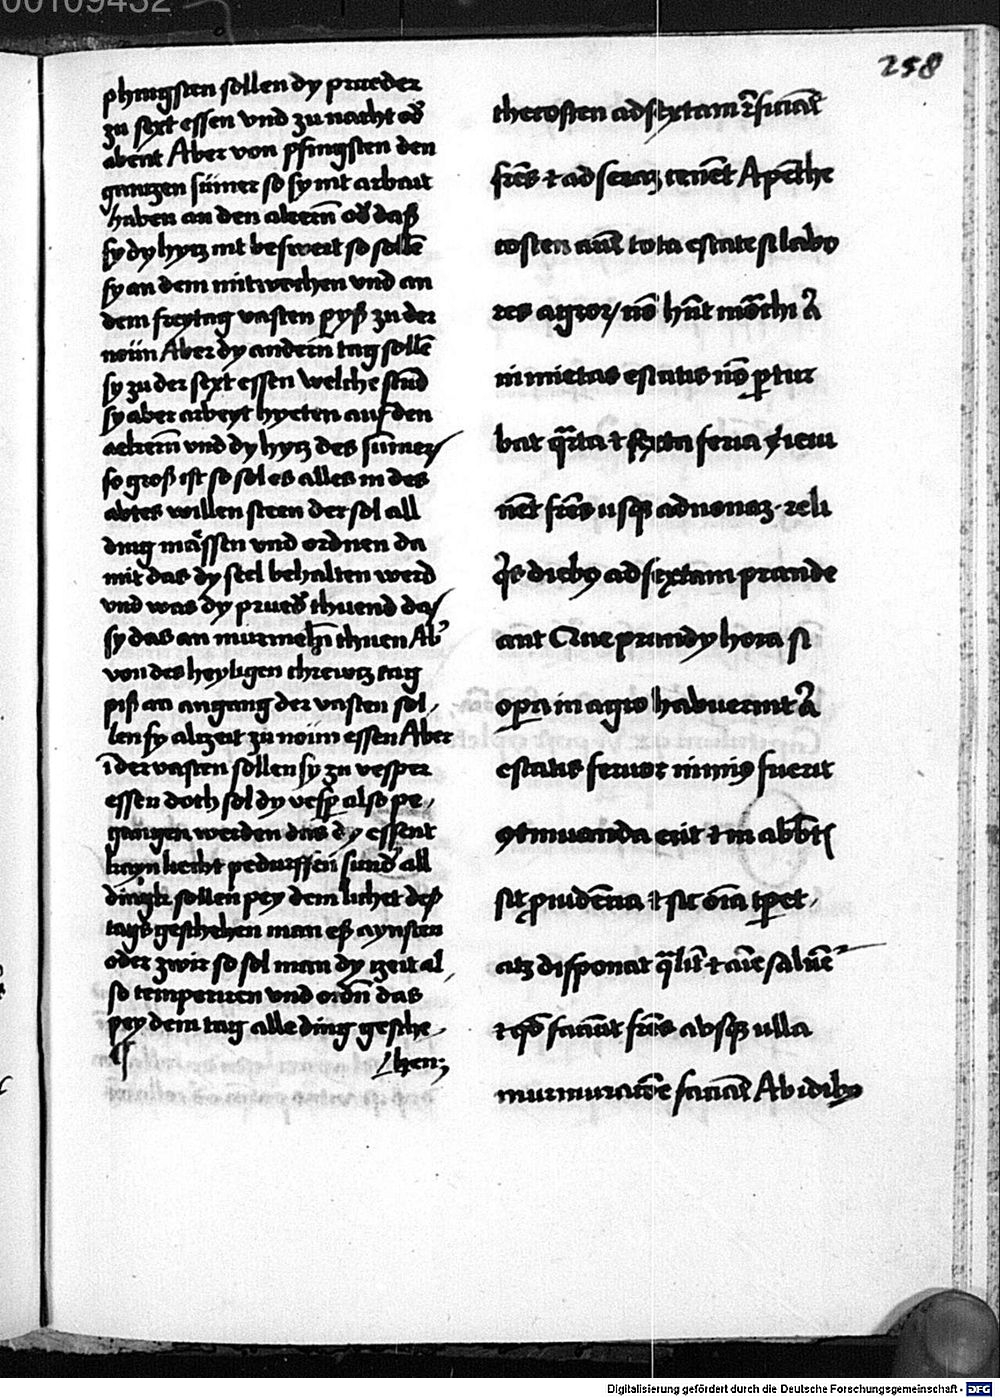 00109432
258
phingsten sollen dy prueder
zu sext essen vnd zu nacht od̾
abent Aber von pfingsten den
gantzen sūmer so sy nit arbait
haben an den akern̄ od̾ daß
sy dy hytz nit beswert so sollē
sy an dem mitwochen vnd an
dem freytag vasten pyß zu der
noün Aber dy andern tag sollē
sy zu der sext essen welche stūd
sy aber arbeyt hyeten auf den
aekern̄ vnd dy hytz des sūmers
so groß ist so sol es alles in des
abtes willen steen der sol all
ding mässen vnd ordnen da
mit das dy seel behalten werd
vnd was dy prued̾ thuend das
sy das an murmeln̄ thuen Ab̾
von des heyligen chrewtz tag
piß an angang der vasten sol,
len sy altzeit zu noün essen Aber
ī der vasten söllen sy zu vesper
essen doch sol dy vesp̄ also pe,
gangen werden das dy essent
kayn liecht pedurffen sund̾ all
dingk sollen pey dem lichet deß
tags geschehen man eß aynsten
oder zwir so sol man dy tzeit al,
so temperiren vnd ordn̄ das
pey dem tag alle ding gesche,
hen;
thecosten ad sextam r̄ficiāt
frēs ⁊ ad seraꝫ cenēt A pēthe
costen aūt tota estate si labo
res agroꝝ nō hn̄t mōchi a̾
nimietas estatis nō ꝑtur
bat q̄rta ⁊ sexta feria ieiu
nēt frēs usqꝫ ad nonaꝫ reli
q̾s dieb⁹ ad sextam prande
ant Que prandy hora si
oꝑa in agro habuerint a̾
estatis feruor nimi⁹ fuerit
ꝯtinuanda erit ⁊ in abb̄tꝭ
sit ꝓuidēcia ⁊ sic oīa tꝑet,
atꝫ disponat q̄lit̾ ⁊ aīe saluēt̾
⁊ qd̾ faciūt frēs absqꝫ ulla
murmuratōe faciāt Ab idib⁹
Digitalisierung gefördert durch die Deutsche Forschungsgemeinschaft - DFG